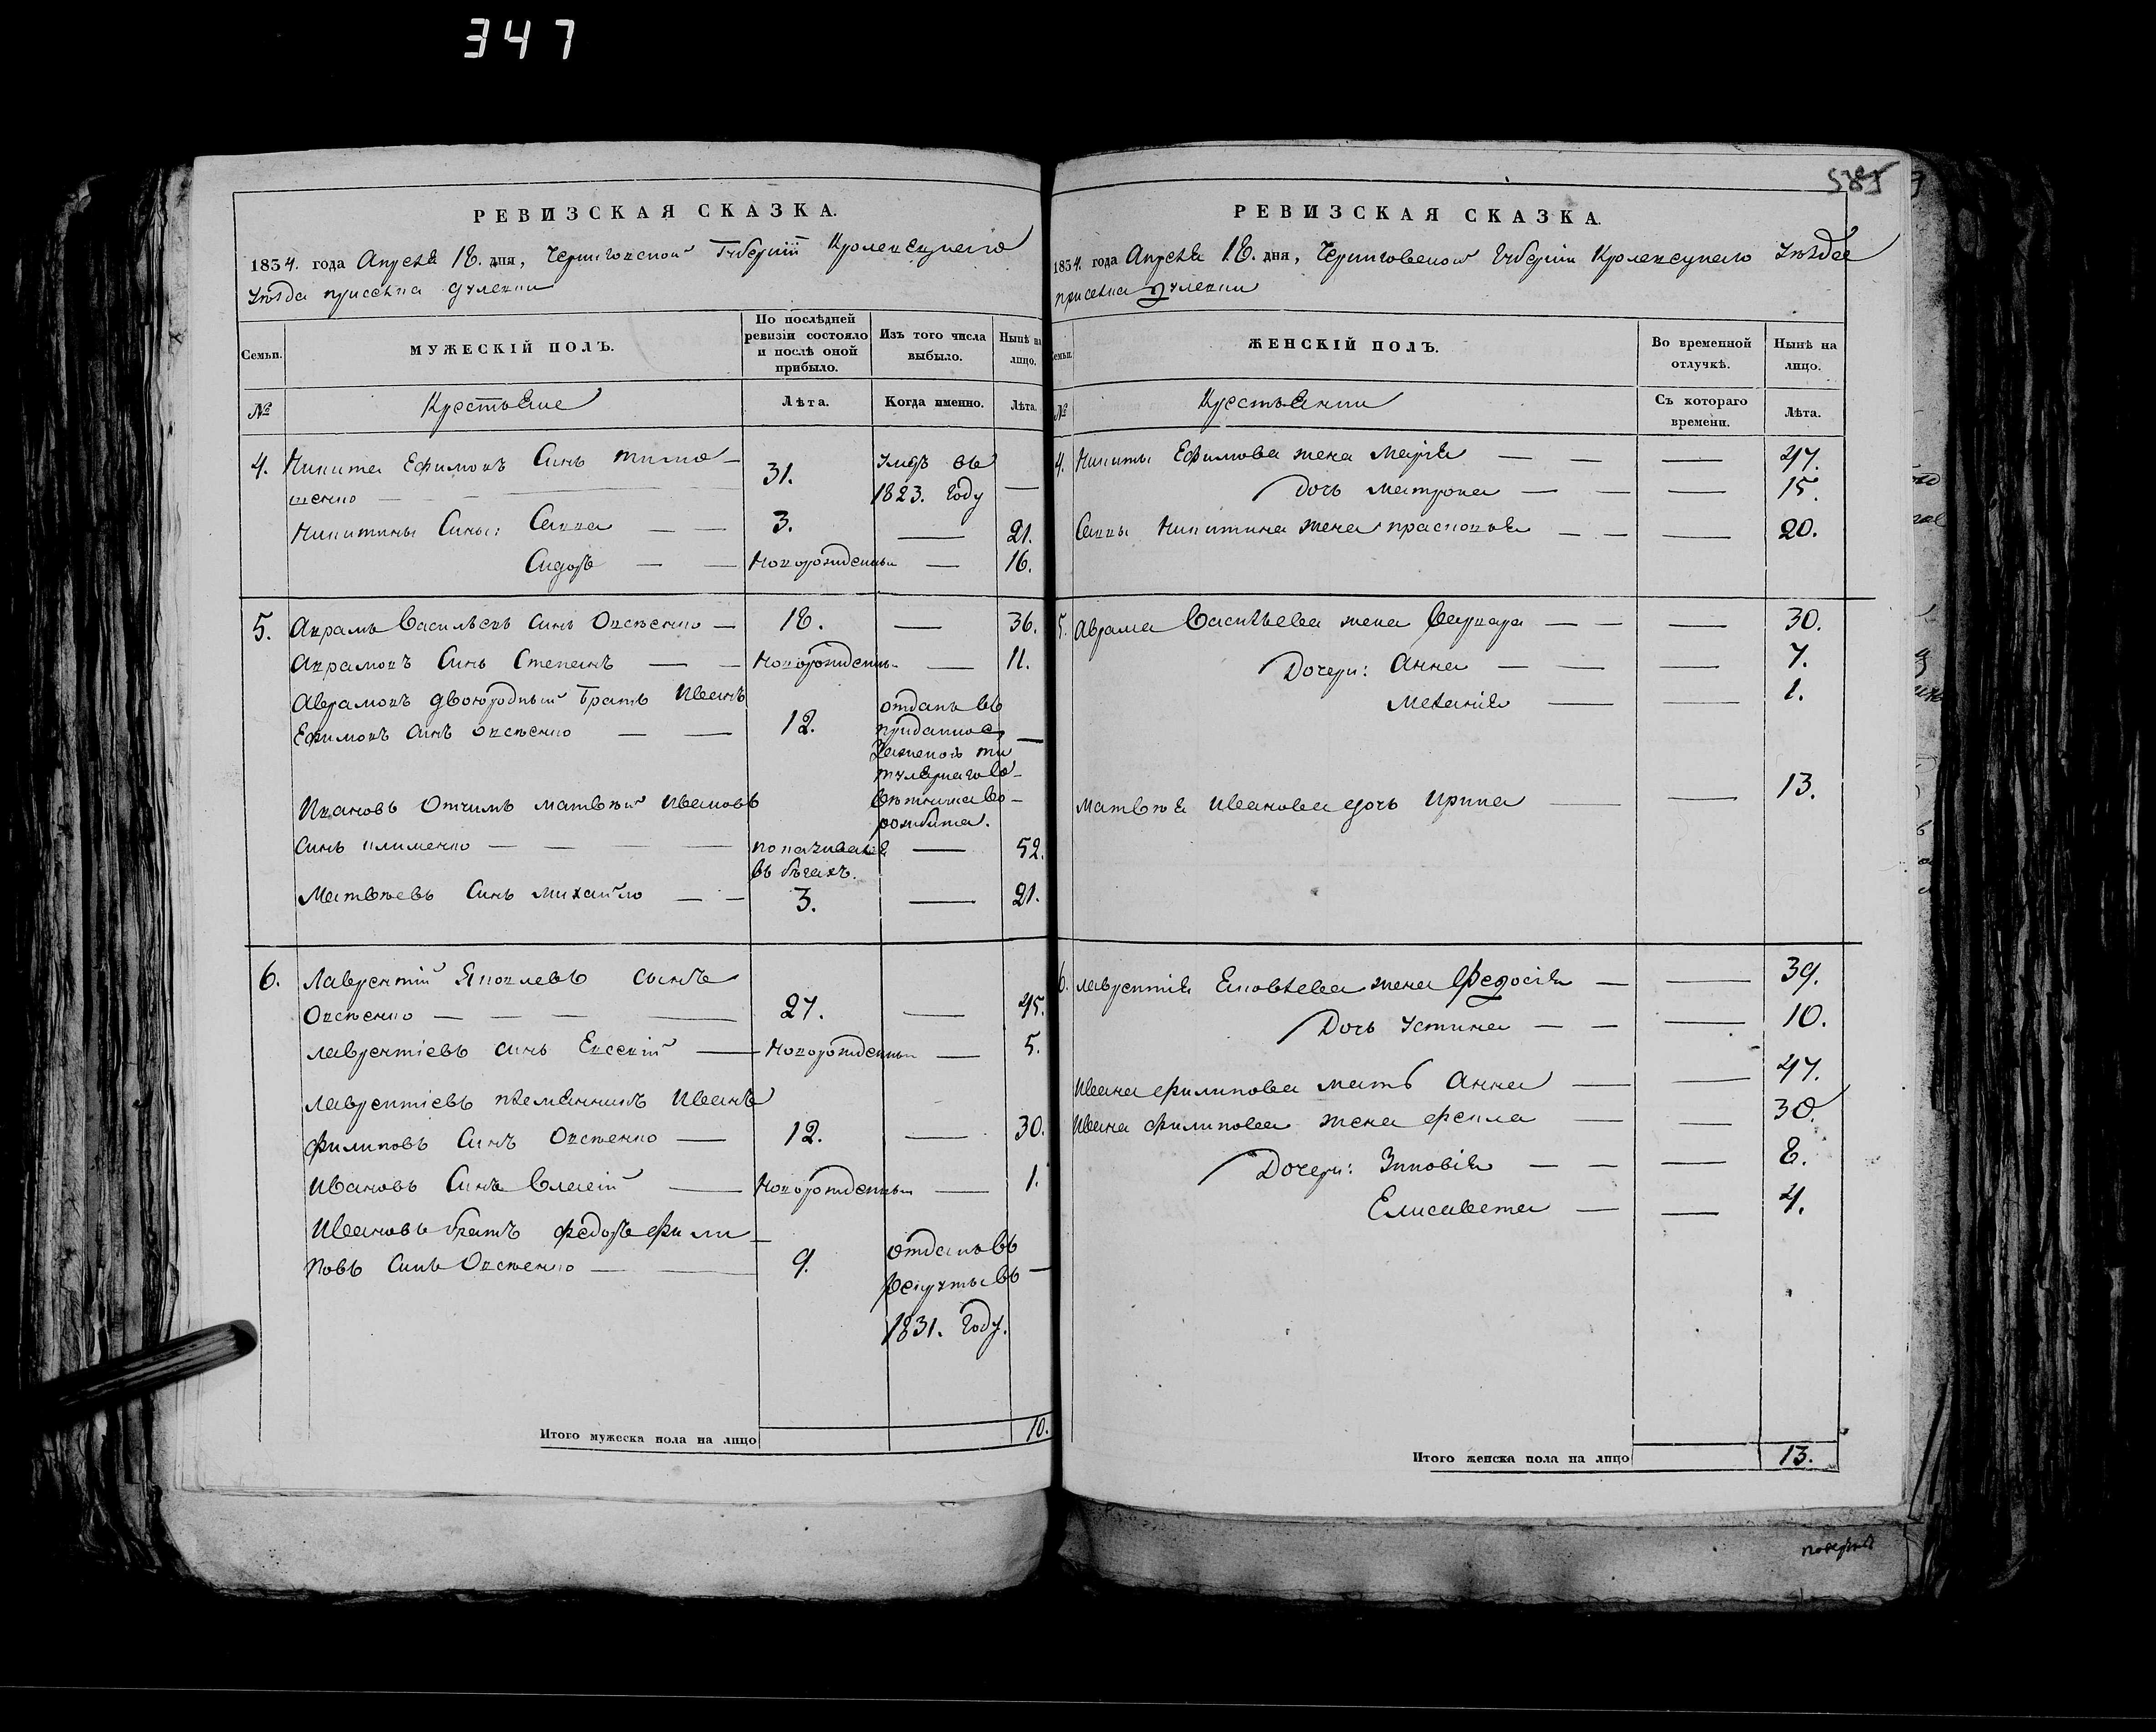 347
РЕВИЗСКАЯ СКАЗКА.
1834. года Апреля 18. дня, Черниговской Губернiи Кролевецкаго
Уѣзда присѣлка
Семьи.
МУЖЕСКIЙ ПОЛЪ.
По послѣдней ревизiи состояло и послѣ оной прибыло.
Изъ того числа выбыло.
Нынѣ на лицо.
№
Крестьяне
Лѣта.
Когда именно.
Лѣта.
4. Никита Ефимовъ Синъ Тимо-
шенко — 31. умеръ въ 1823. году —
Никитины Сины: Савва — 3. — 21.
Сидоръ — Новорожденны — 16.
5. Аврамъ Васильевъ Синъ Овсѣенко — 18. — 36.
Аврамовъ Синъ Степанъ — Новорожденны — 11.
Аврамовъ двоюродный братъ Иванъ
Ефимовъ Синъ Овсѣенко — 12. отданъ въ
приданное
за женою ти
тулярнаго Со-
вѣтника
Ивановъ Отчимъ Матвѣй Ивановъ
Синъ Клименко — показыванъ въ бѣгахъ. — 52.
Матвѣевъ Синъ Михайло — 3. — 21.
6. Лаврентiй Яковлевъ сынъ
Овсѣенко — 27. — 45.
Лаврентiевъ синъ Евсевiй — Новорожденны — 5.
Лаврентiевъ племянникъ Иванъ
Филиповъ Синъ Овсѣенко — 12. — 30.
Ивановъ Синъ Власiй — Новорожденны — 1.
Ивановъ братъ Федоръ Фили
повъ Синъ Овсѣенко — 9. отданъ въ
рекруты въ —
1831. году.
Итого мужеска пола на лицо 10.
585
РЕВИЗСКАЯ СКАЗКА.
1834. года Апреля 18. дня, Черниговской Губернiи Кролевецкаго Уѣзда
присѣлка
Семьи.
ЖЕНСКIЙ ПОЛЪ.
Во временной отлучкѣ.
Нынѣ на лицо.
№
Крестьянки
Съ котораго времени.
Лѣта.
4. Никиты Ефимова жена Марiя — — 47.
Дочь Матрона — — 15.
Саввы Никитина жена Прасковiя — — 20.
5. Аврама Васильева жена Варвара — — 30.
Дочери: Анна — — 7.
Меланiя — — 1.
Матвѣя Иванова дочь Ирина — — 13.
6. Лаврентiя Яковлева жена Федосiя — — 39.
Дочь Устина — — 10.
Ивана Филипова мать Анна — — 47.
Ивана Филипова жена Фекла — — 30.
Дочери: Зиновiя — — 8.
Елисавета — — 4.
Итого женска пола на лицо 13.